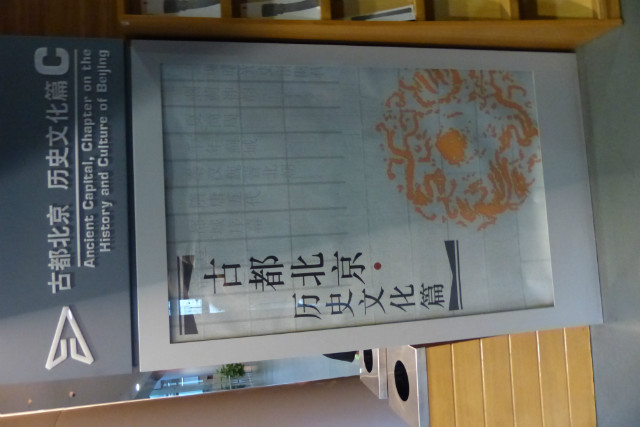 古都北京 历史文化篇 C
Ancient Capital, Chapter on the
History and Culture of Beijing
古都北京·
历史文化篇